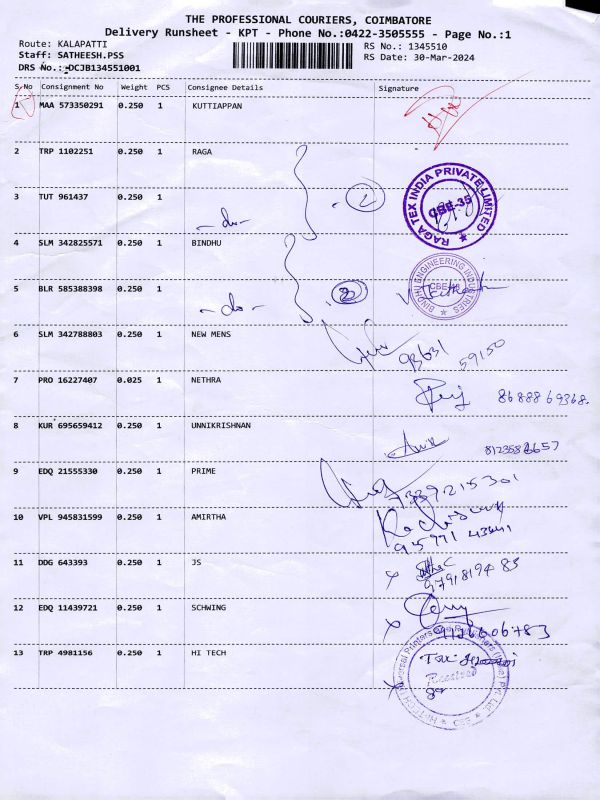 THE PROFESSIONAL COURIERS, COIMBATORE
Delivery Runsheet - KPT - Phone No.:0422-3505555 - Page No.:1
Route: KALAPATTI
RS No.: 1345510
Staff: SATHEESH.PSS
RS Date: 30-Mar-2024
DRS No.: DCJB134551001
S.No Consignment No Weight PCS Consignee Details Signature
1 MAA 573350291 0.250 1 KUTTIAPPAN
2 TRP 1102251 0.250 1 RAGA
2
RAGA TEX INDIA PRIVATE LIMITED
CBE-35
3 TUT 961437 0.250 1
-do-
4 SLM 342825571 0.250 1 BINDHU
BINDHU ENGINEERING INDUSTRIES
5 BLR 585388398 0.250 1
-do-
2
6 SLM 342788803 0.250 1 NEW MENS
93631 59150
7 PRO 16227407 0.025 1 NETHRA
8688869368.
8 KUR 695659412 0.250 1 UNNIKRISHNAN
9 EDQ 21555330 0.250 1 PRIME
7339215301
10 VPL 945831599 0.250 1 AMIRTHA
11 DDG 643393 0.250 1 JS
12 EDQ 11439721 0.250 1 SCHWING
13 TRP 4981156 0.250 1 HI TECH
Received